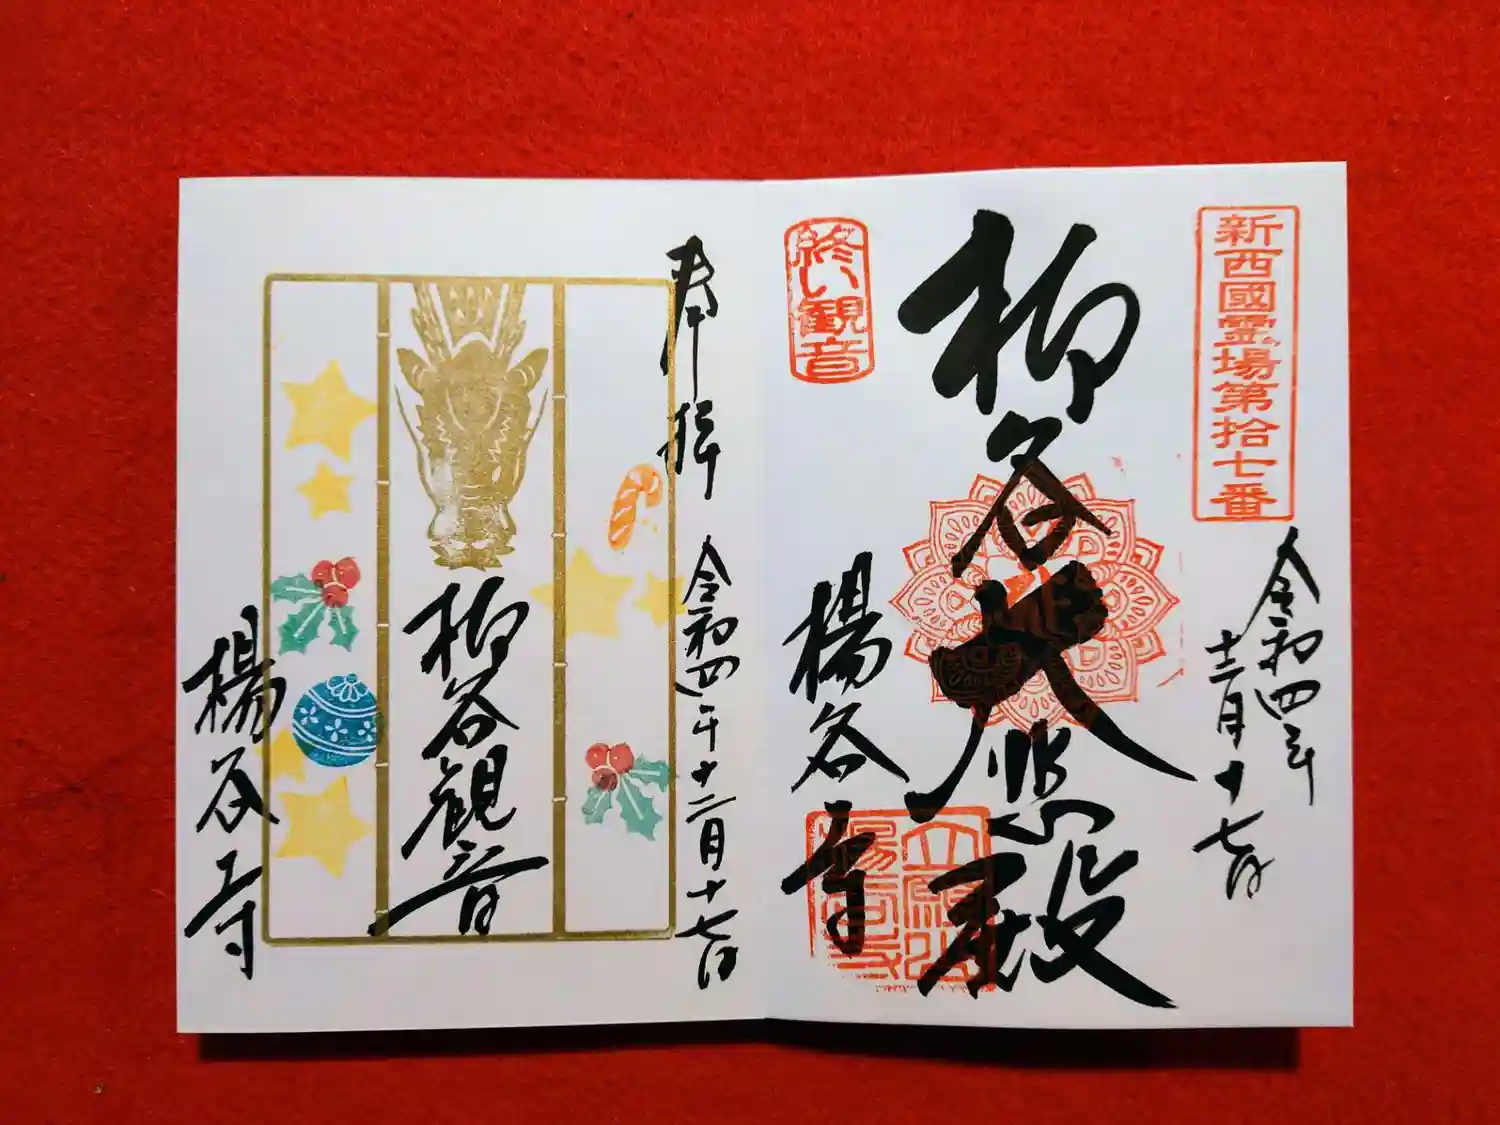 新西國霊場第拾七番
令和四年
十二月十七日
柳谷大悲殿
終い観音
楊谷寺
奉拝
令和四年十二月十七日
柳谷観音
楊谷寺